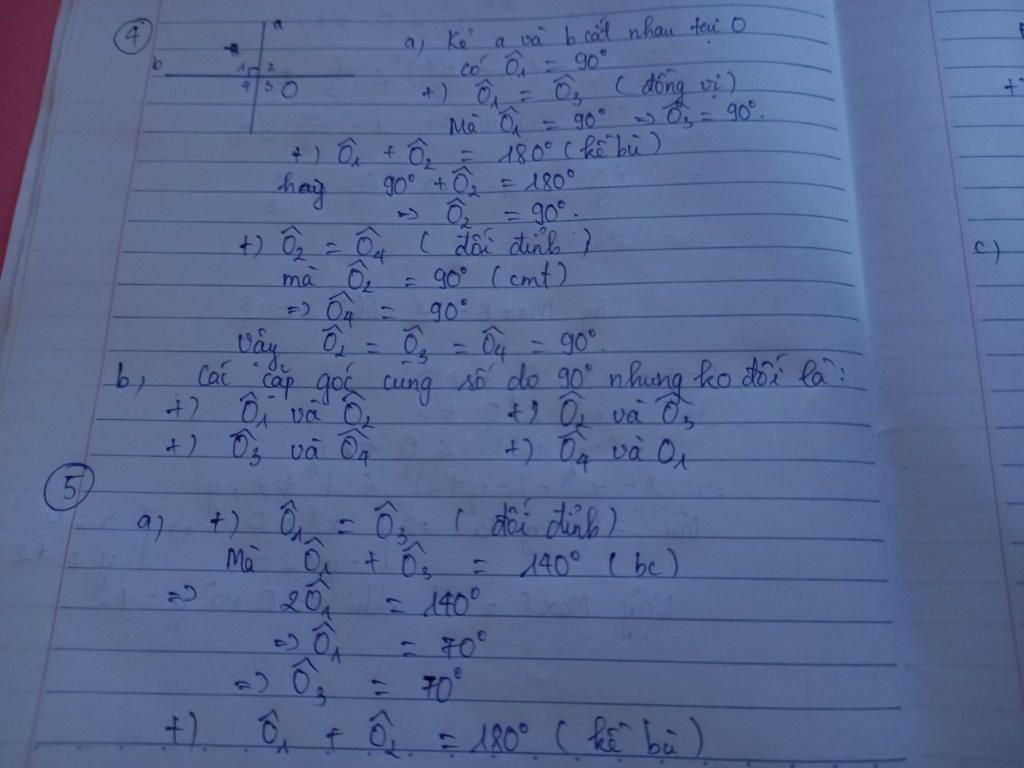 4
a
b
1 2
4 3 O
a, Kẻ a và b cắt nhau tại O
có Ô₁ = 90°
+) Ô₁ = Ô₃ (đồng vị)
Mà Ô₁ = 90° => Ô₃ = 90°.
+) Ô₁ + Ô₂ = 180° (kề bù)
hay 90° + Ô₂ = 180°
=> Ô₂ = 90°.
+) Ô₂ = Ô₄ (đối đỉnh)
mà Ô₂ = 90° (cmt)
=> Ô₄ = 90°
Vậy Ô₂ = Ô₃ = Ô₄ = 90°.
b, Các cặp góc cùng số đo 90° nhưng ko đối là:
+) Ô₁ và Ô₂ +) Ô₂ và Ô₃
+) Ô₃ và Ô₄ +) Ô₄ và O₁
5
a) +) Ô₁ = Ô₃ (đối đỉnh)
Mà Ô₁ + Ô₃ = 140° (bc)
=> 2Ô₁ = 140°
=> Ô₁ = 70°
=> Ô₃ = 70°
+) Ô₁ + Ô₂ = 180° (kề bù)
c)